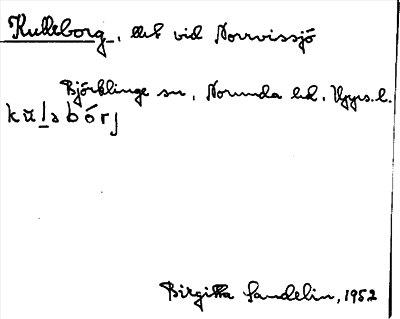 Kulleborg, elt vid Norrvissjö
Björklinge sn, Norunda hd, Upps. l.
kŭl̲əbórj
Birgitta Sandelin, 1952